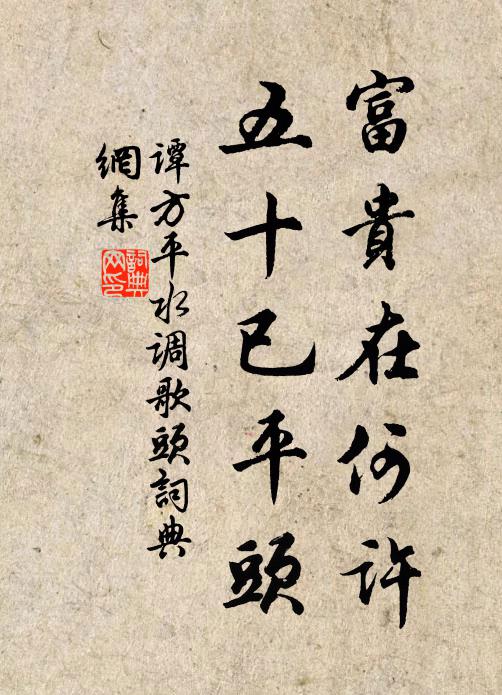 富貴在何許
五十已平頭
譚方平水調歌頭詞典
網集
詞典
网印